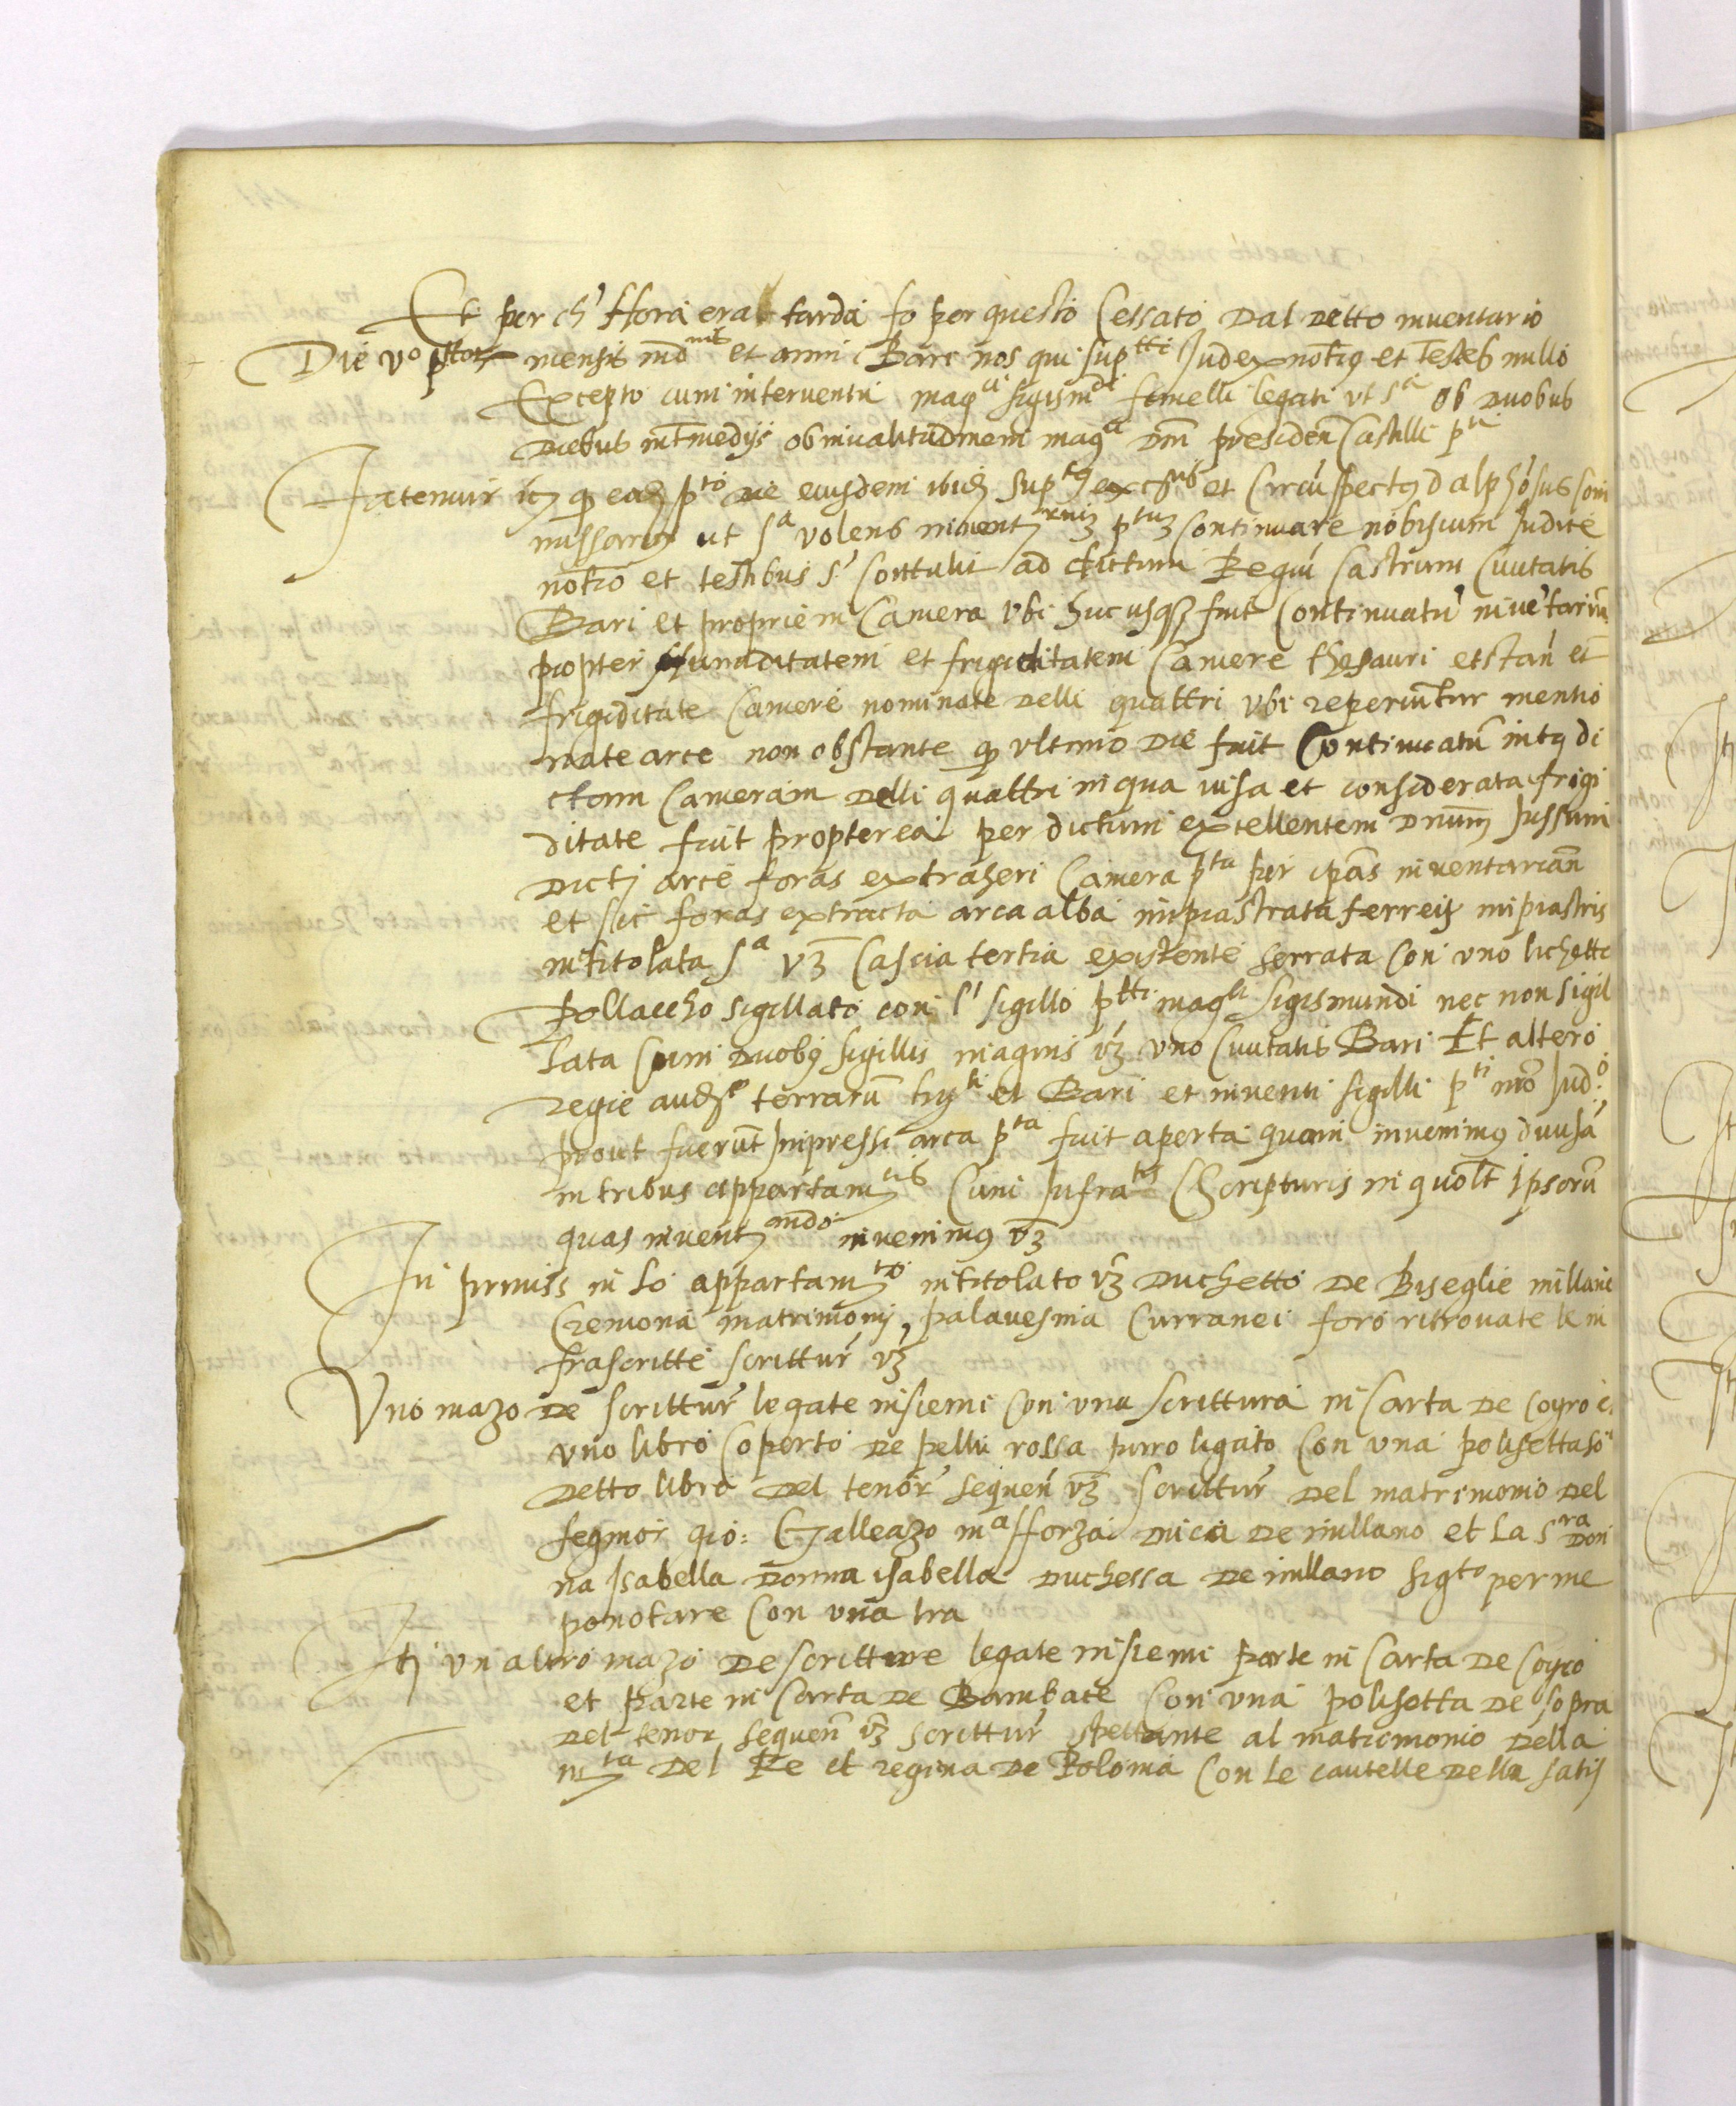 Et per ch' hora era tarda fo per questo Cessato dal detto inventario
Die vo mensis et anni Bari nos qui sup.tti Judex notig et testes nullo
Excepto cum interventu mag.ci sigism.di legati ut s.a ob duobus
diebus intmedijs ob invalitudinem mag.ci dni presiden Castelli p.ti
Fatemur eiusdem ibidz sup.tg et Circuspectg d alphosus Com
missarig ut s.a volens inventz ptuz Continuare nobiscum Judice
notio et testibus s' Contulit ad dictum Regiu Castrum Civitatis
Bari et proprie in Camera ubi huc usqz fuit Continuatu invetariu
propter humiditatem et frigiditatem Camere thesauri et stan et
frigiditate Camere nominate delli quattri ubi reperiuntur mentio
nate arce non obstante qp ultimo die fuit Continuatu intg di
ctam Cameram delli quattri in qua visa et considerata frigi
ditate fuit propterea per dictum excellentem dnum Jussum
arce foras extraheri Camera p.ta per ipas inventarian
et sic foras extracta arca alba inpiastrata ferreis inpiastris
intitolata s.a vz Cascia tertia existente serrata Con uno lichetto
Pollaccho sigillato con l' sigillo p.tti mag.ci Sigismundi nec non sigil
lata Cum duobg sigillis magnis vz uno Civitatis Bari Et altero
regie terraru et Bari et inventi sigilli p.ti
prout fuerut Inpressi arca p.ta fuit aperta quam invenimg divisa
in tribus appartam.tis Cum Infra.tis Scripturis in quolt ipsoru
quas inventz.ando invenimg vz
In primis in lo appartam.to intitolato vz Duchetto de Biseglie millane
Cremona matrimonij, palavesina Curranei foro ritrovate le in
frascritte scrittur vz
Uno mazo de scrittur legate insiemi Con una scrittura in Carta de Coyro e
uno libro Coperto de pelle rossa puro ligato Con una polisetta so
detto libro del tenor sequen vz scrittur del matrimonio del
segnior gio: Galleazo m.a sforza duca de millano et la s.ra don
na Isabella donna isabella duchessa de millano sig.to per me
po notare Con una lra
Itz un altro mazo de scritture legate insiemi parte in Carta de Coyro
et parte in Carta de Bambace Con una polisetta de sopra
del tenor sequen vz scrittur spettante al matrimonio della
m.ta del Re et regina de Polonia Con le cautelle della satis